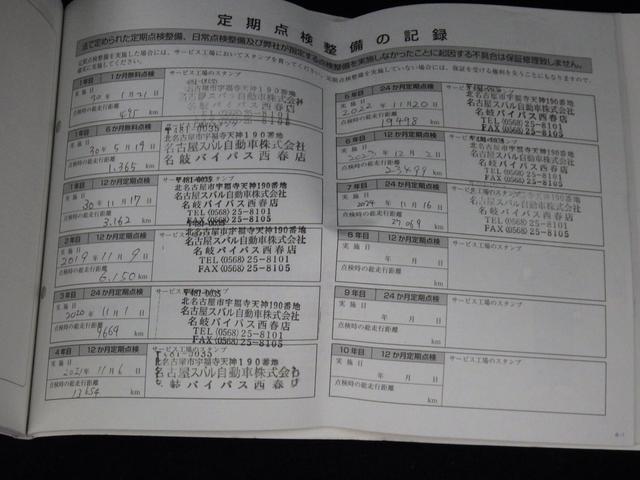 定期点検整備の記録
法で定められた定期点検整備、日常点検整備及び弊社が指定する点検整備を実施しなかったことに起因する不具合は保証修理致しません。
定期点検整備を実施した場合には、サービス工場においてスタンプを貰ってください。定期点検整備を実施していない場合には、保証を受ける権利を失うことにもなりますので、
確実に実施してください。
1年目 1か月無料点検 サービス工場のスタンプ
実施日
年 1月21日
点検時の総走行距離
495 km
北名古屋市宇福寺天神190番地
名古屋スバル自動車株式会社
名岐バイパス西春店
1年目 6か月無料点検
〒481-0035
実施日
30年5月19日
点検時の総走行距離
1,365 km
北名古屋市宇福寺天神190番地
名古屋スバル自動車株式会社
名岐バイパス西春店
1年目 12か月定期点検 サービス工場のスタンプ
〒481-0035
実施日
30年11月17日
点検時の総走行距離
3,162 km
北名古屋市宇福寺天神190番地
名古屋スバル自動車株式会社
名岐バイパス西春店
TEL(0568)25-8101
FAX(0568)25-8105
2年目 12か月定期点検
実施日
2019年11月9日
点検時の総走行距離
6,150 km
北名古屋市宇福寺天神190番地
名古屋スバル自動車株式会社
名岐バイパス西春店
TEL(0568)25-8101
FAX(0568)25-8105
3年目 24か月定期点検 サービス工場のスタンプ
実施日
2020年11月1日
点検時の総走行距離
9669 km
北名古屋市宇福寺天神190番地
名古屋スバル自動車株式会社
名岐バイパス西春店
TEL(0568)25-8101
FAX(0568)25-8105
4年目 12か月定期点検
〒481-0035
実施日
2021年11月6日
点検時の総走行距離
13654 km
北名古屋市宇福寺天神190番地
名古屋スバル自動車株式会社
岐バイパス西春店
24か月定期点検 サービス工場のスタンプ
実施日
2022年11月20日
点検時の総走行距離
19498 km
北名古屋市宇福寺天神190番地
名古屋スバル自動車株式会社
名岐バイパス西春店
TEL(0568)25-8101
FAX(0568)25-8105
12か月定期点検
実施日
2023年12月2日
点検時の総走行距離
23499 km
北名古屋市宇福寺天神190番地
名古屋スバル自動車株式会社
名岐バイパス西春店
TEL(0568)25-8101
FAX(0568)25-8105
7年目 24か月定期点検 サービス工場のスタンプ
実施日
2024年11月16日
点検時の総走行距離
27,069 km
北名古屋市宇福寺天神190番地
名古屋スバル自動車株式会社
名岐バイパス西春店
TEL(0568)25-8101
FAX(0568)25-8105
12か月定期点検 サービス工場のスタンプ
実施日
年 月 日
点検時の総走行距離
km
9年目 24か月定期点検 サービス工場のスタンプ
実施日
年 月 日
点検時の総走行距離
km
10年目 12か月定期点検 サービス工場のスタンプ
実施日
年 月 日
点検時の総走行距離
km